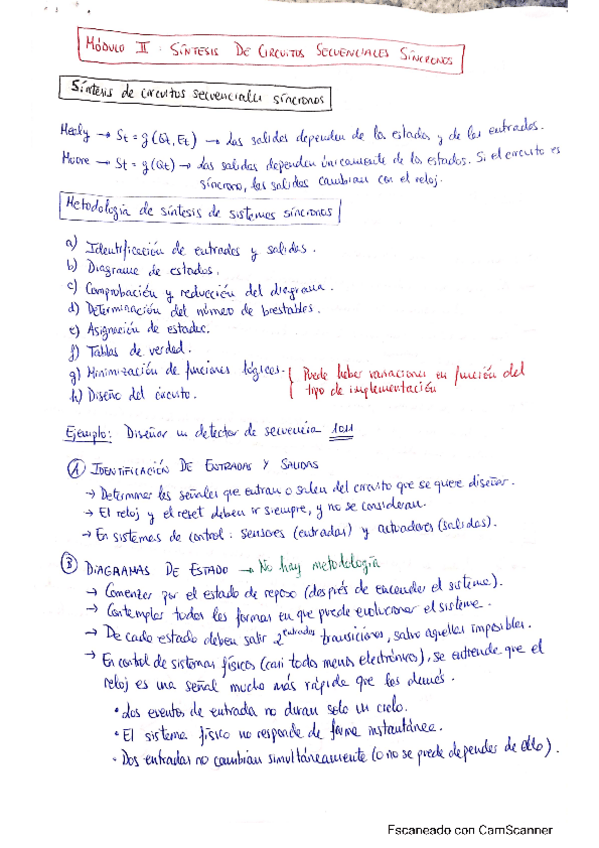 MÓDULO II : SÍNTESIS DE CIRCUITOS SECUENCIALES SÍNCRONOS
Síntesis de circuitos secuenciales síncronos
Mealy → St = g(Qt, Et) → Las salidas dependen de los estados y de las entradas.
Moore → St = g(Qt) → Las salidas dependen únicamente de los estados. Si el circuito es
síncrono, las salidas cambian con el reloj.
Metodología de síntesis de sistemas síncronos
a) Identificación de entradas y salidas.
b) Diagrama de estados.
c) Comprobación y reducción del diagrama.
d) Determinación del número de biestables.
e) Asignación de estados.
f) Tablas de verdad.
g) Minimización de funciones lógicas. { Puede haber variaciones en función del
h) Diseño del circuito. tipo de implementación
Ejemplo: Diseñar un detector de secuencia 1011
A IDENTIFICACIÓN DE ENTRADAS Y SALIDAS
→ Determinar las señales que entran o salen del circuito que se quiere diseñar.
→ El reloj y el reset deben ir siempre, y no se consideran.
→ En sistemas de control: sensores (entradas) y actuadores (salidas).
B DIAGRAMAS DE ESTADO → No hay metodología
→ Comenzar por el estado de reposo (después de encender el sistema).
→ Contemplar todas las formas en que puede evolucionar el sistema.
→ De cada estado deben salir 2^entradas transiciones, salvo aquellas imposibles.
→ En control de sistemas físicos (casi todos menos electrónicos), se entiende que el
reloj es una señal mucho más rápida que las demás.
• Los eventos de entrada no duran solo un ciclo.
• El sistema físico no responde de forma instantánea.
• Dos entradas no cambian simultáneamente (o no se puede depender de ello).
Escaneado con CamScanner